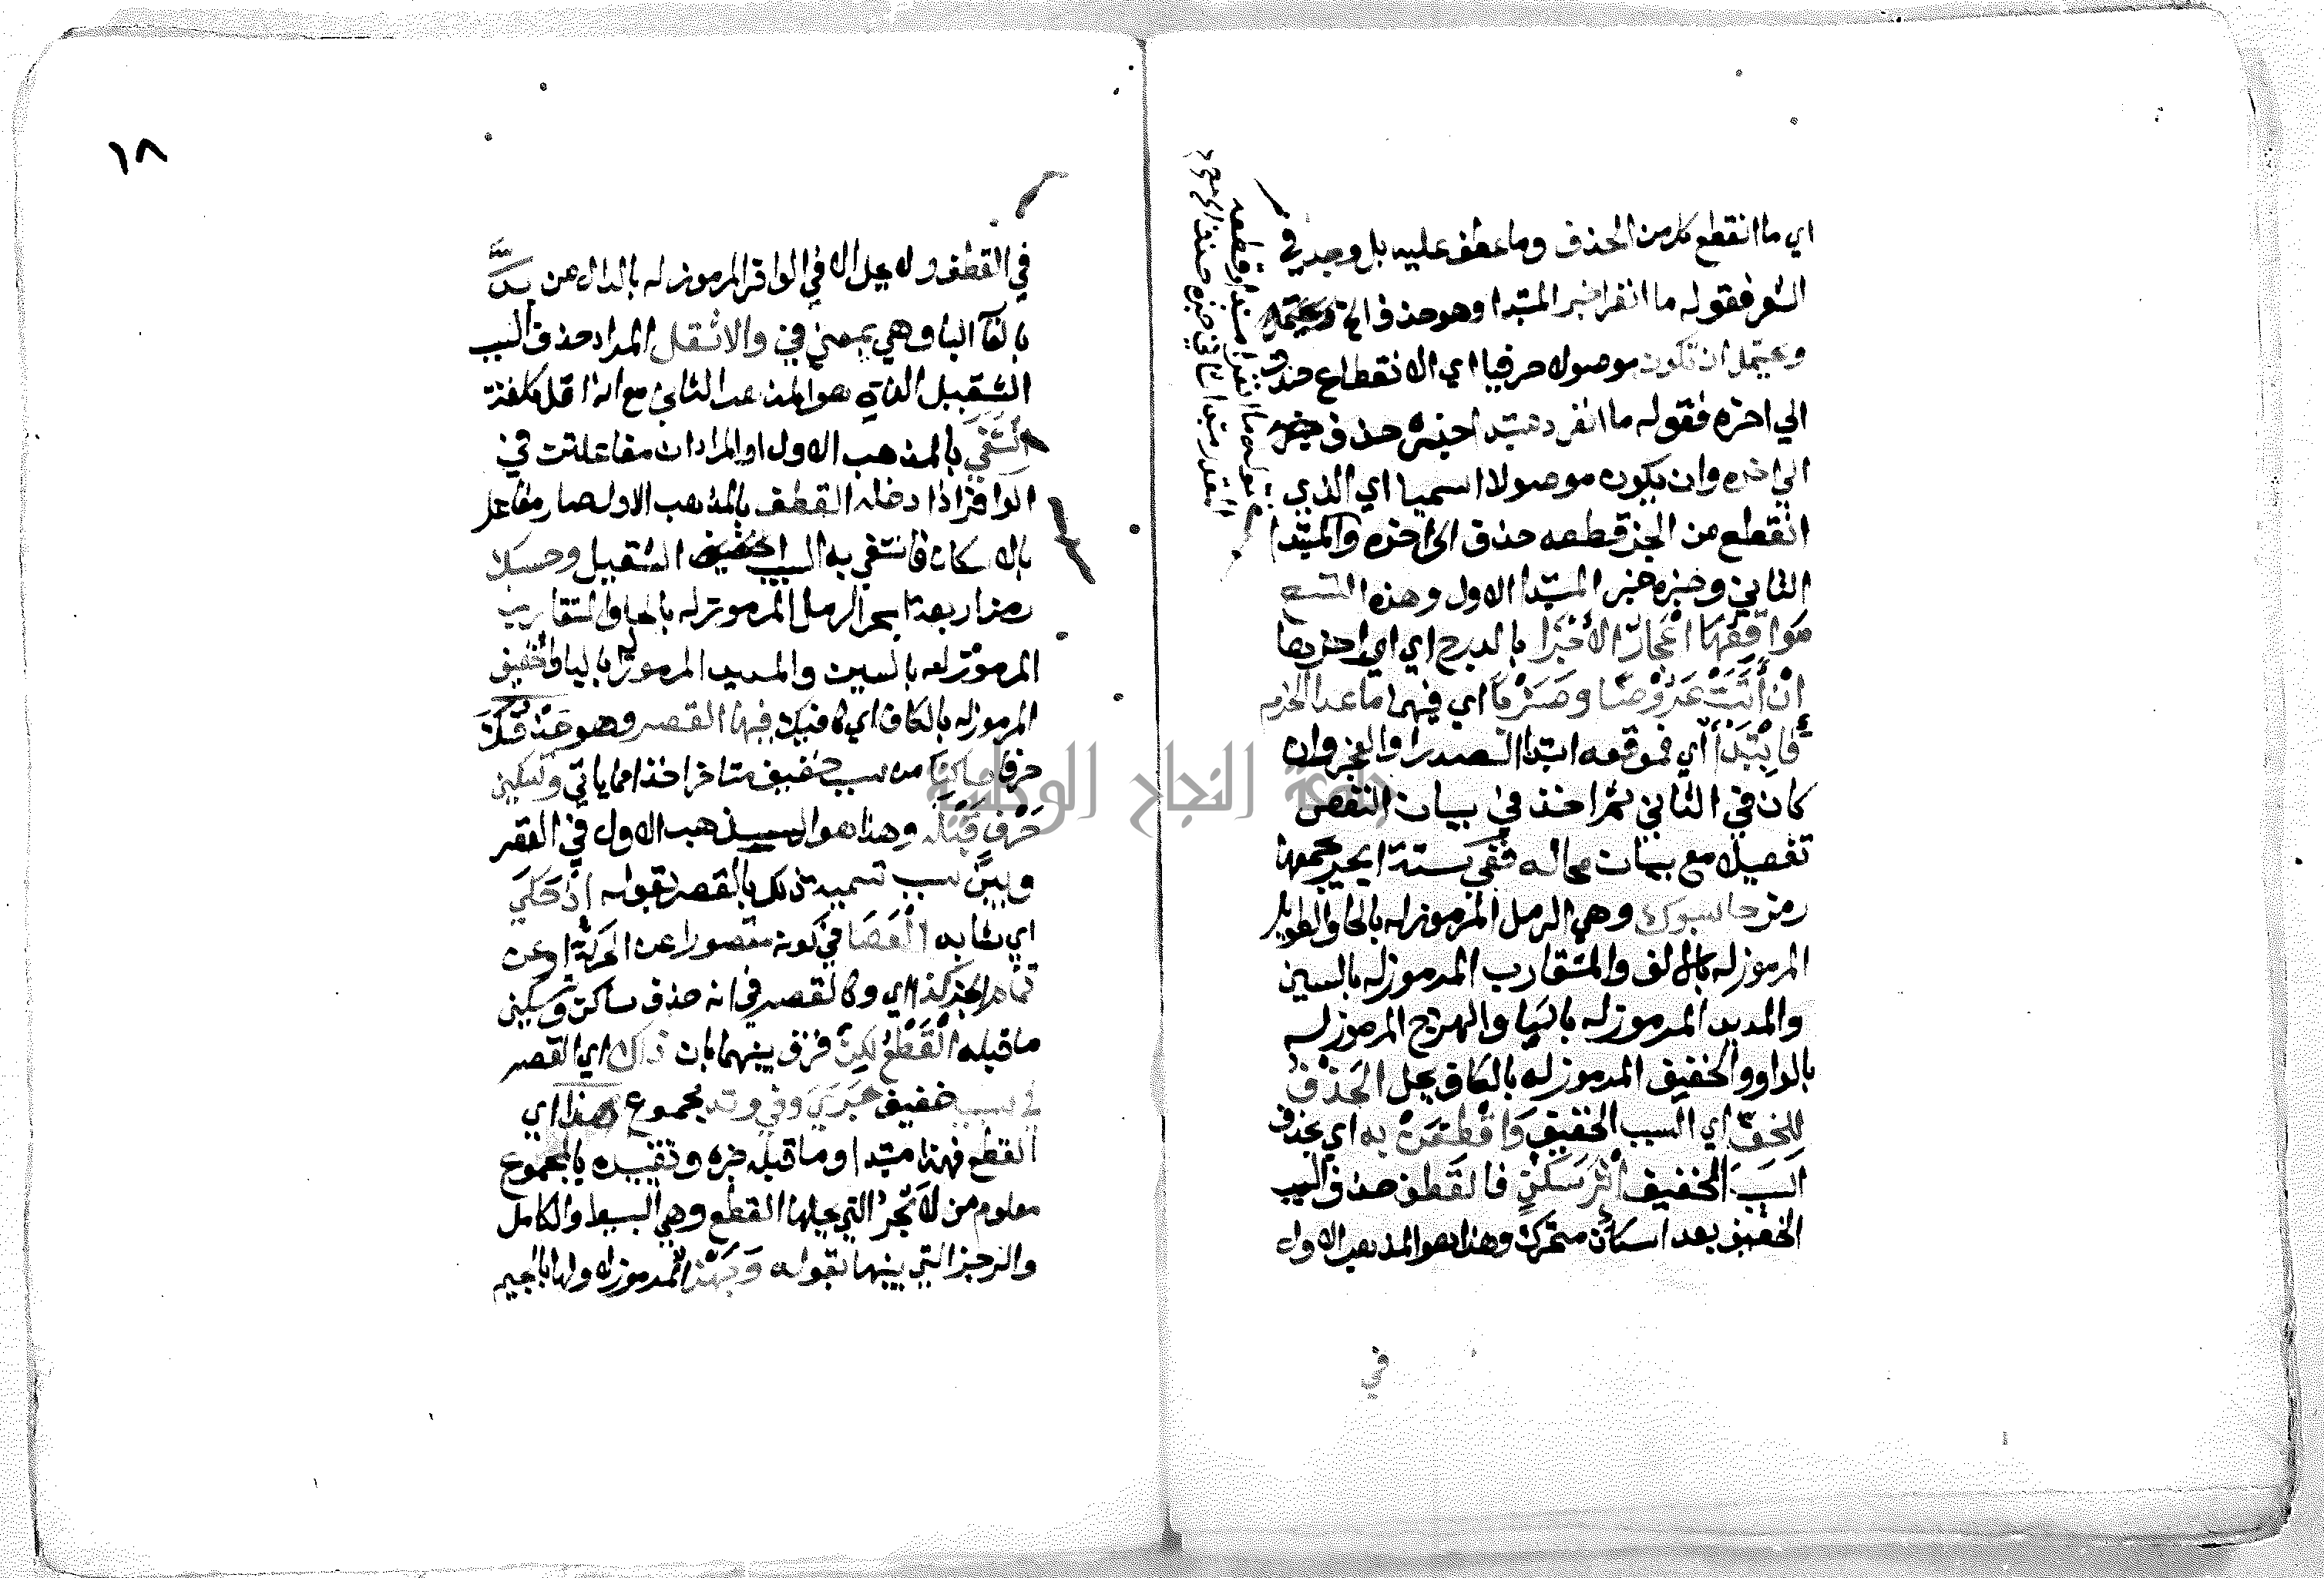 اي ما انقطع كل من الحذف وما عطف عليه بل وجد في
الشعر فقوله ما انفرا خبر المبتدا وهو حذف الخ
ويحتمل ان تكون موصولا حرفيا اي الانقطاع حذف
الي اخره فقوله ما انفرد مبتدا خبره حذف
الي اخره وان يكون موصولا اسميا اي الذي
انقطع من الجزء قطعه حذف الى اخره والمبتدا
الثاني وخبره خبر المبتدا الاول وهذه التسع
مواقعها اعجاز الاجزا بالدرج اي اواخرها
ان أتت عروضا وضربا اي فيهما ما عدا الخزم
فابتدا اي فموقعه ابتدا الصدر والعجز وان
كان في الثاني ثم اخذ في بيان النقص
تفصيلا مع بيان محاله ففي ستة ابحر يجمعها
رمز حاسبوك وهي الرمل المرموز له بالحا والطويل
المرموز له بالالف والمتقارب المرموز له بالسين
والمديد المرموز له باليا والهزج المرموز له
بالواو والخفيف المرموز له بالكاف يحل الحذف
للخف اي السبب الخفيف واقطفن به اي بحذف
السبب الخفيف اثر سكن فالقطف حذف السبب
الخفيف بعد اسكان متحرك وهذا هو المذهب الاول
في
١٨
في القطف ولا يحل الا في الوافر المرموز له بالدال من
بالفا البا وهي بمعني في والاثقل المراد حذف السبب
الثقيل هو المذهب الثاني مع انه اقل كلفة
انتفي بالمذهب الاول او المراد ان مفاعلتن في
الوافر اذا دخله القطف بالمذهب الاول صار مفاعل
بالاسكان فانتفي به السبب الثقيل وحسبلا
رمز اربعة ابحر الرمل المرموز له بالحا والمتقارب
المرموز له بالسين والمديد المرموز له باليا والخفيف
المرموز له بالكاف اي فيها القصر وهو حذفك
حرفا ساكنا من سبب خفيف متاخر اخذا مما ياتي وتسكين
حرف قبله وهذا هو المذهب الاول في القصر
وبين سبب تسمية ذلك بالقصر بقوله اذ حكي
اي شابه العصا في كونه مقصورا عن الحركة او عن
تمام الجزء كذا اي وكالقصر في انه حذف ساكن وتسكين
ما قبله القطع لكن فرق بينهما بان ذاك اي القصر
في سبب خفيف جري وفي وتد مجموع هذا اي
القطع فهذا مبتدا وما قبله خبره وتقييده بالمجموع
معلوم من الابحر التي يحلها القطع وهي البسيط والكامل
والرجز التي بينها بقوله وجهز المرموز له ولها بالجيم